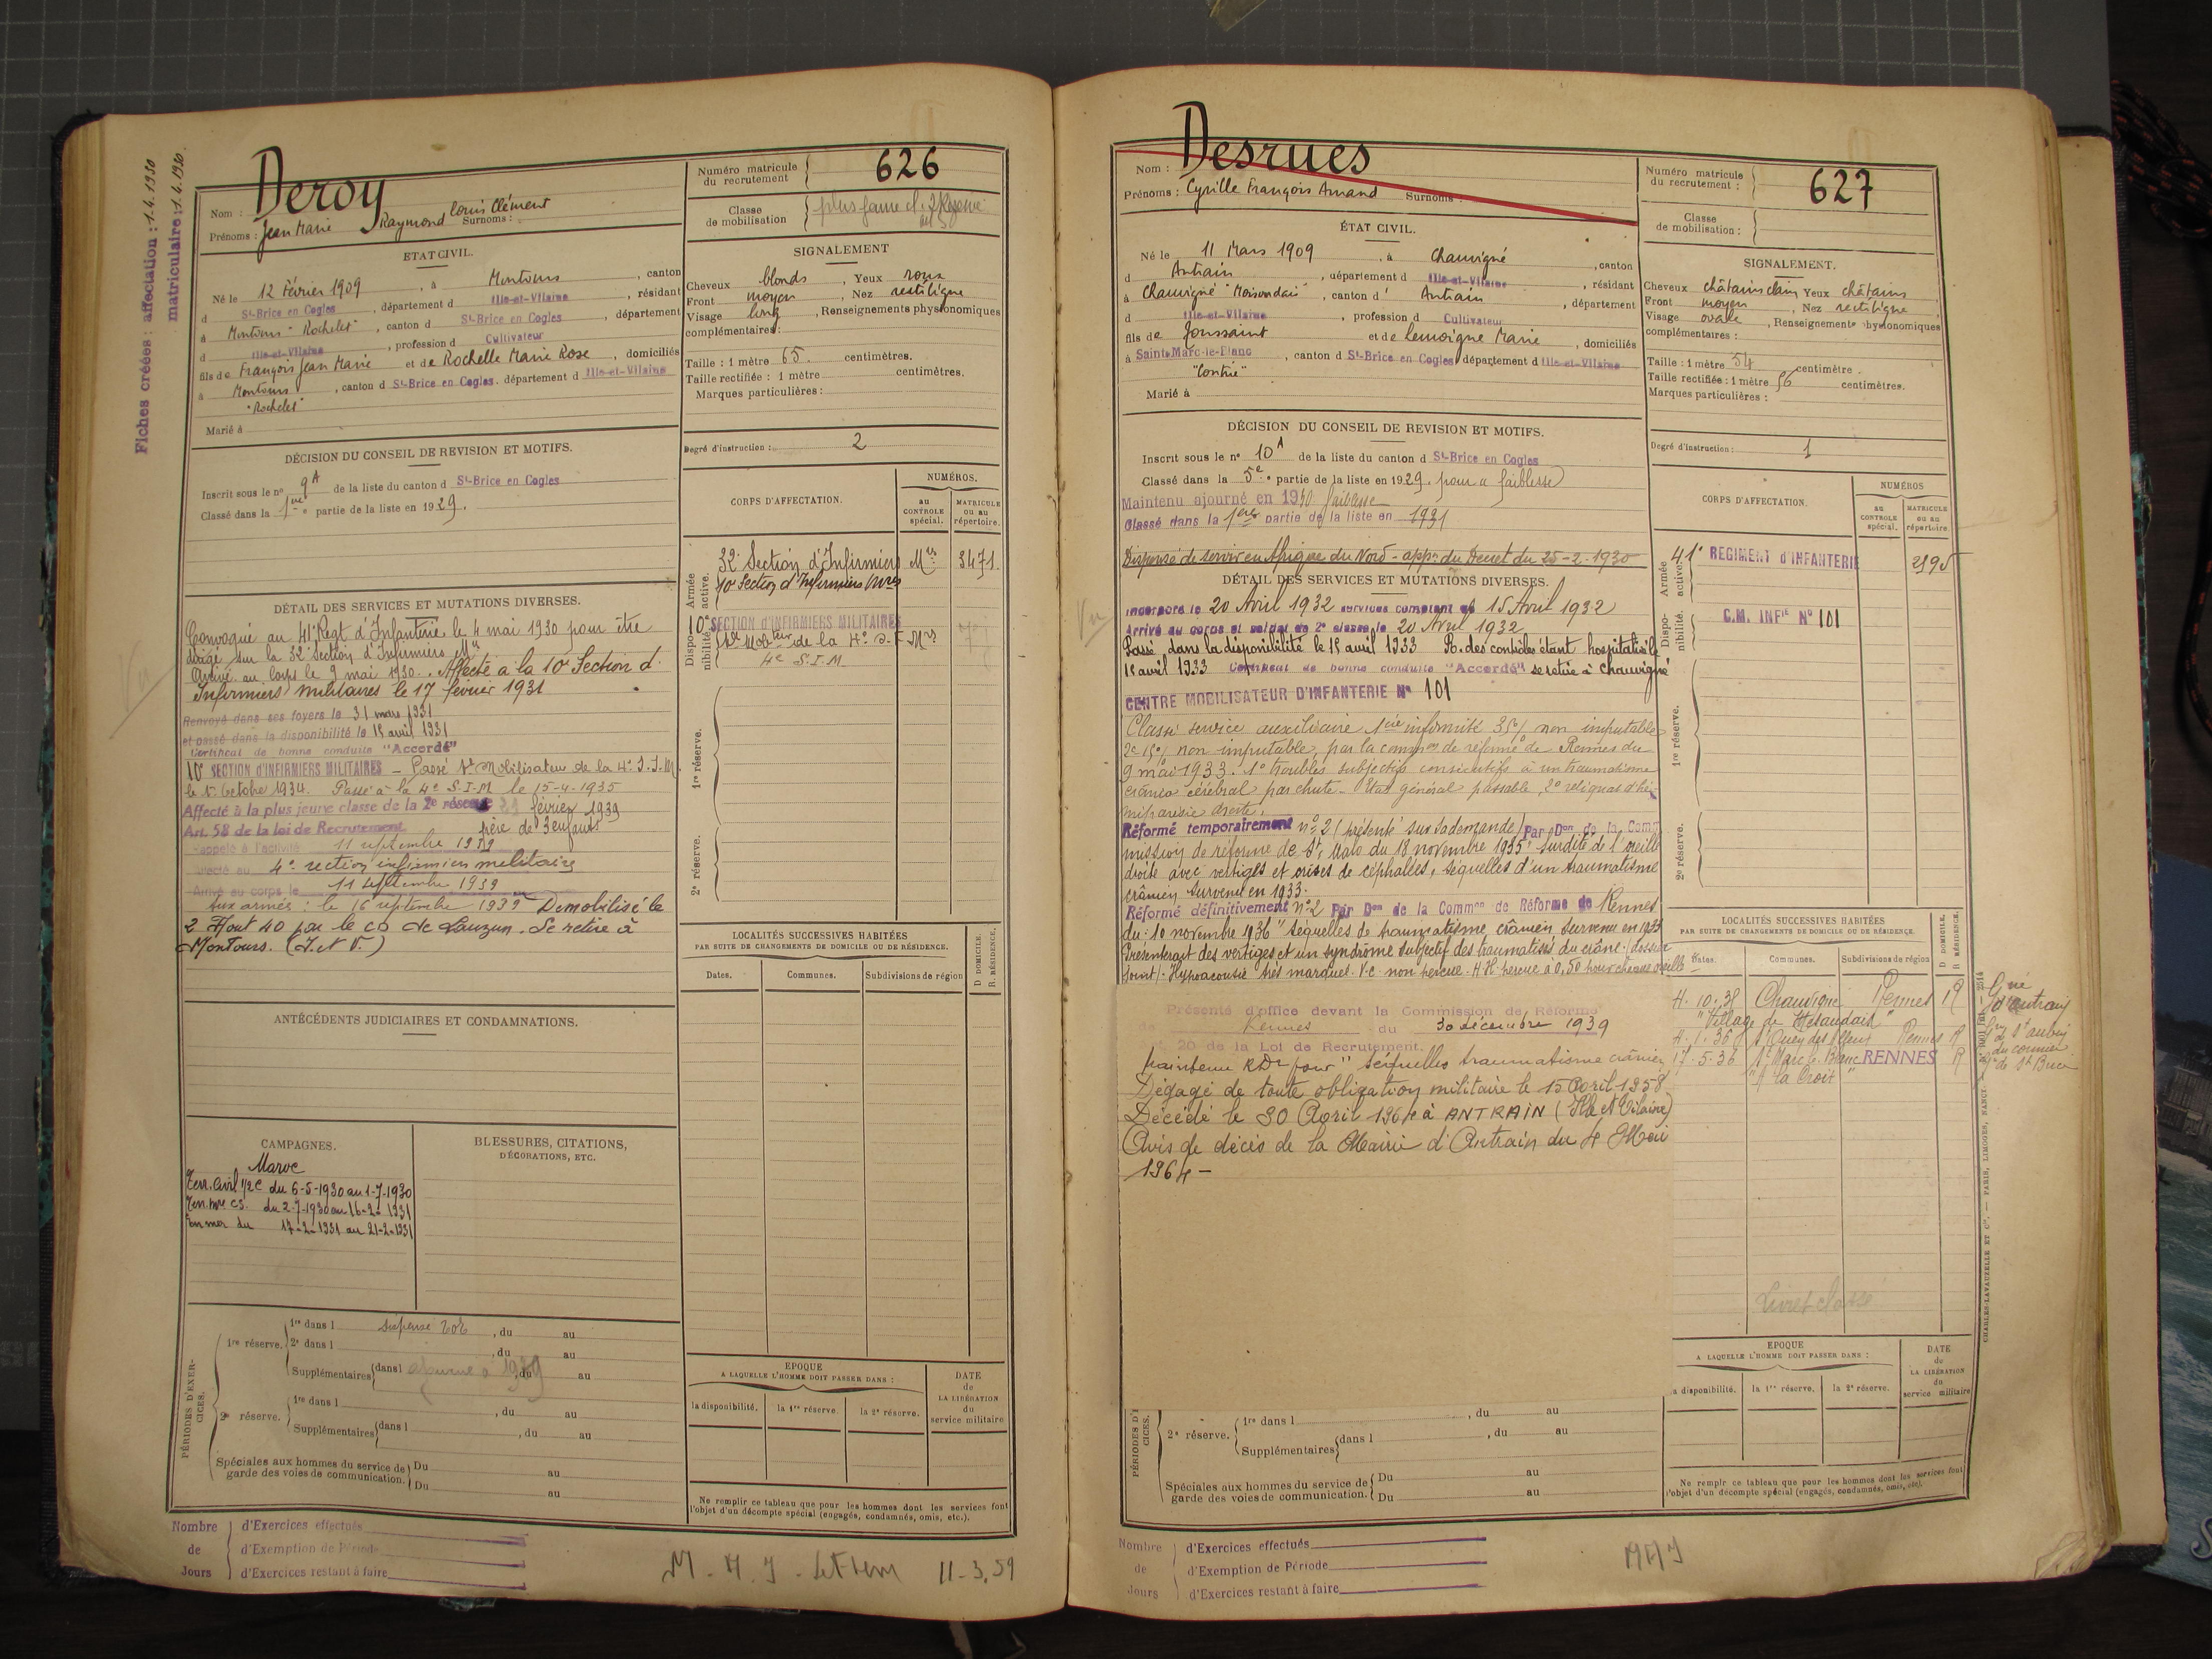 Fiches créées : affectation : 1.4.1930
matriculaire : 1.4.1930.
Nom : Deroy
Prénoms : Jean Marie Raymond Louis Clément Surnoms :
Numéro matricule du recrutement 626
Classe de mobilisation
ETAT CIVIL.
Né le 12 Février 1909, à Montours, canton
d St-Brice en Cogles, département d Ille-et-Vilaine, résidant
à Montours "Rochelet", canton d St-Brice en Cogles, département
d Ille-et-Vilaine, profession d Cultivateur
fils de François Jean Marie et de Rochelle Marie Rose, domiciliés
à Montours, canton d St-Brice en Cogles. département d Ille-et-Vilaine
"Rochelet"
Marié à
SIGNALEMENT
Cheveux blonds, Yeux roux
Front moyen, Nez rectiligne
Visage long, Renseignements physionomiques
complémentaires :
Taille : 1 mètre 65. centimètres.
Taille rectifiée : 1 mètre centimètres.
Marques particulières :
Degré d'instruction : 2
DÉCISION DU CONSEIL DE REVISION ET MOTIFS.
Inscrit sous le n° 9A de la liste du canton d St-Brice en Cogles
Classé dans la 1ère partie de la liste en 1929.
CORPS D'AFFECTATION.
NUMÉROS.
au CONTROLE spécial.
MATRICULE ou au répertoire.
Armée active.
32e Section d'Infirmiers Mres 3471.
10e Section d'Infirmiers Mres
Disponibilité.
10e SECTION D'INFIRMIERS MILITAIRES
4e S.I.M
1re réserve.
2e réserve.
DÉTAIL DES SERVICES ET MUTATIONS DIVERSES.
Convoqué au 41e Regt d'Infanterie le 4 mai 1930 pour être
dirigé sur la 32e Section d'Infirmiers Mres
Arrivé au corps le 9 mai 1930. Affecté à la 10e Section d'
Infirmiers militaires le 17 février 1931
Renvoyé dans ses foyers le 31 mars 1931
et passé dans la disponibilité le 15 avril 1931
Certificat de bonne conduite "Accordé"
10e SECTION D'INFIRMIERS MILITAIRES – Passé Mobilisateur de la 4e S.I.M.
le 1er Octobre 1934. Passé à la 4e S.I.M le 15-4-1935
Affecté à la plus jeune classe de la 2e réserve 21 février 1939
Art. 58 de la loi de Recrutement père de 3 enfants
Rappelé à l'activité 11 septembre 1939
Affecté au 4e section infirmiers militaire
Arrivé au corps le 11 septembre 1939
Aux armées : le 16 septembre 1939 Démobilisé le
2 Aout 40 par le CD de Lauzun. Se retire à
Montours. (I. et V.)
LOCALITÉS SUCCESSIVES HABITÉES
PAR SUITE DE CHANGEMENTS DE DOMICILE OU DE RÉSIDENCE.
Dates. Communes. Subdivisions de région
D DOMICILE. R RÉSIDENCE.
ANTÉCÉDENTS JUDICIAIRES ET CONDAMNATIONS.
CAMPAGNES.
Maroc
Terr. Civil 1/2 C du 6-5-1930 au 1-7-1930
Terr. Mre CS. du 2-7-1930 au 16-2-1931
En mer du 17-2-1931 au 21-2-1931
BLESSURES, CITATIONS,
DÉCORATIONS, ETC.
PÉRIODES D'EXERCICES.
1re réserve. 1re dans l , du au
2e dans l , du au
Supplémentaires dans l 1939 , du au
2e réserve. 1re dans l , du au
Supplémentaires dans l , du au
Spéciales aux hommes du service de garde des voies de communication. Du au
Du au
EPOQUE
A LAQUELLE L'HOMME DOIT PASSER DANS :
la disponibilité. la 1re réserve. la 2e réserve.
DATE de LA LIBÉRATION du service militaire
Ne remplir ce tableau que pour les hommes dont les services font
l'objet d'un décompte spécial (engagés, condamnés, omis, etc.).
Nombre de Jours
d'Exercices effectués
d'Exemption de Période
d'Exercices restant à faire
11-3.59
Nom : Desrues
Prénoms : Cyrille François Amand Surnoms :
Numéro matricule du recrutement : 627
Classe de mobilisation :
ÉTAT CIVIL.
Né le 11 Mars 1909, à Chauvigné, canton
d Antrain, département d Ille-et-Vilaine, résidant
à Chauvigné "Maisondais", canton d' Antrain, département
d Ille-et-Vilaine, profession d Cultivateur
fils de Joussaint et de Lemoigne Marie, domiciliés
à Saint-Marc-le-Blanc, canton d St-Brice en Cogles, département d Ille-et-Vilaine
"Contrie"
Marié à
SIGNALEMENT.
Cheveux châtains clairs Yeux châtains
Front moyen, Nez rectiligne
Visage ovale, Renseignements physionomiques
complémentaires :
Taille : 1 mètre 54 centimètre.
Taille rectifiée : 1 mètre 56 centimètres.
Marques particulières :
Degré d'instruction : 1
DÉCISION DU CONSEIL DE REVISION ET MOTIFS.
Inscrit sous le n° 10A de la liste du canton d St-Brice en Cogles
Classé dans la 5e partie de la liste en 1929. pour faiblesse
Maintenu ajourné en 1930 faiblesse
Classé dans la 1ère partie de la liste en 1931
Dispensé de servir en Afrique du Nord - appon du Décret du 25-2-1930
CORPS D'AFFECTATION.
NUMÉROS
au CONTROLE spécial.
MATRICULE ou au répertoire.
Armée active.
41e REGIMENT D'INFANTERIE 2195
Disponibilité.
C.M. INFie N° 101
1re réserve.
2e réserve.
DÉTAIL DES SERVICES ET MUTATIONS DIVERSES.
Vu
Incorporé le 20 Avril 1932 services comptant du 15 Avril 1932
Arrivé au corps et soldat de 2e classe le 20 Avril 1932
Passé dans la disponibilité le 15 avril 1933 R. des contrôles étant hospitalisé le
15 avril 1933 Certificat de bonne conduite "Accordé" se retire à Chauvigné
CENTRE MOBILISATEUR D'INFANTERIE N° 101
Classé service auxiliaire 1ère infirmité 35% non imputable
2e 15% non imputable, par la common de réforme de Rennes du
9 mai 1933. 1° troubles subjectifs consécutifs à un traumatisme
crânio cérébral par chute - Etat général passable, 2° reliquat d'hé-
miparésie droite.
Réformé temporairement n°2 (présenté sur sa demande) Par Don de la Com
mission de réforme de St Malo du 18 novembre 1935. surdité de l'oreille
droite avec vertiges et crises de céphalées, séquelles d'un traumatisme
crânien survenu en 1933.
Réformé définitivement n°2 Par Don de la Common de Réforme de Rennes
du 10 novembre 1936 "séquelles de traumatisme crânien survenu en 1933
Présenterait des vertiges et un syndrôme subjectif des traumatisés du crâne. (dossier
joint) - Hypoacousie très marquée. V.C. non perçue. H.H. perçue à 0,50 pour chaque oreille
Présenté d'office devant la Commission de Réforme
de Rennes du 30 décembre 1939
20 de la Loi de Recrutement.
Maintenu RD2 pour "séquelles traumatisme crânien
Dégagé de toute obligation militaire le 15 Avril 1958
Décédé le 30 Avril 1964 à ANTRAIN (Ille et Vilaine)
Avis de décès de la Mairie d'Antrain du 4 Mai
1964 -
LOCALITÉS SUCCESSIVES HABITÉES
PAR SUITE DE CHANGEMENTS DE DOMICILE OU DE RÉSIDENCE.
Dates. Communes. Subdivisions de région
D DOMICILE. R RÉSIDENCE.
4.10.35 Chauvigné Rennes R
4.1.36 St Ouen des Alleux Rennes R
17.5.36 St Marc le Blanc RENNES R
"A la Croix"
Gie d'Antrain
Gie St Aubin du Cormier
Gie de St Brice
Livret classé
CHARLES-LAVAUZELLE ET Cie. — PARIS, LIMOGES, NANCY.
EPOQUE
A LAQUELLE L'HOMME DOIT PASSER DANS :
la disponibilité. la 1re réserve. la 2e réserve.
DATE de LA LIBÉRATION du service militaire
PÉRIODES D'E CICES.
2e réserve. 1re dans l , du au
Supplémentaires dans l , du au
Spéciales aux hommes du service de garde des voies de communication. Du au
Du au
Ne remplir ce tableau que pour les hommes dont les services font
l'objet d'un décompte spécial (engagés, condamnés, omis, etc).
Nombre de Jours
d'Exercices effectués
d'Exemption de Période
d'Exercices restant à faire